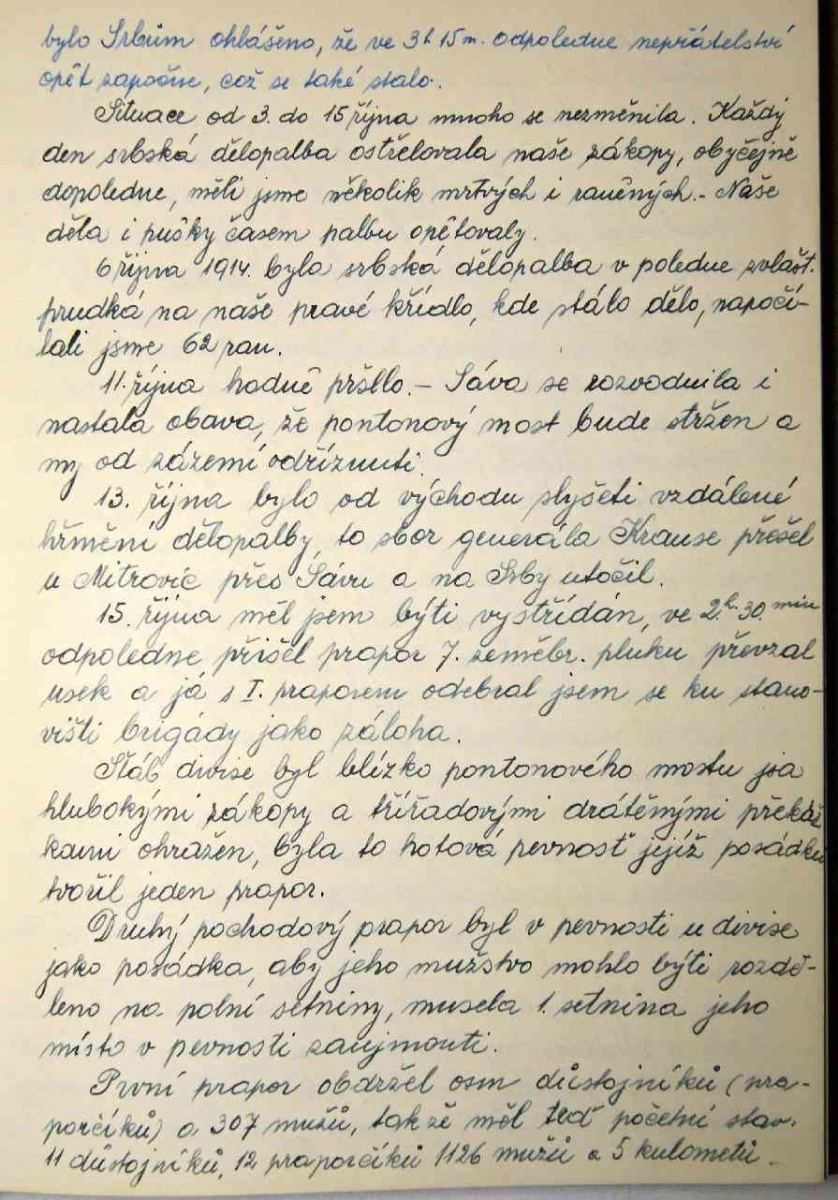 bylo Srbům ohlášeno, že ve 3h 15m. odpoledne nepřátelství
opět započne, což se také stalo.
Situace od 3. do 15 října mnoho se nezměnila. Každý
den srbská dělopalba ostřelovala naše zákopy, obyčejně
dopoledne, měli jsme několik mrtvých i raněných. - Naše
děla i pušky časem palbu opětovaly.
6 října 1914. byla srbská dělopalba v poledne zvlášt.
prudká na naše pravé křídlo, kde stálo dělo, napočí-
tali jsme 62 ran.
11. října hodně pršllo. - Sáva se rozvodnila i
nastala obava, že pontonový most bude stržen a
my od zázemí odříznuti.
13. října bylo od východu slyšeti vzdálené
hřmění dělopalby, to sbor generála Krause přešel
u Mitrovic přes Sávu a na Srby útočil.
15. října měl jsem býti vystřídán, ve 2.h. 30. min
odpoledne přišel prapor 7. zeměbr. pluku převzal
úsek a já s I. praporem odebral jsem se ku stano-
višti brigády jako záloha.
Štáb divise byl blízko pontonového mostu jsa
hlubokými zákopy a třířadovými drátěnými překáž
kami ohražen, byla to hotová pevnosť jejíž posádku
tvořil jeden prapor.
Druhý pochodový prapor byl v pevnosti u divise
jako posádka, aby jeho mužstvo mohlo býti rozdě-
leno na polní setniny, musela 1. setnina jeho
místo v pevnosti zaujmouti.
První prapor obdržel osm důstojníků (pra-
porčíků) a 307 mužů, takže měl teď početní stav.
11 důstojníků, 12 praporčíků 1126 mužů a 5 kulometů.